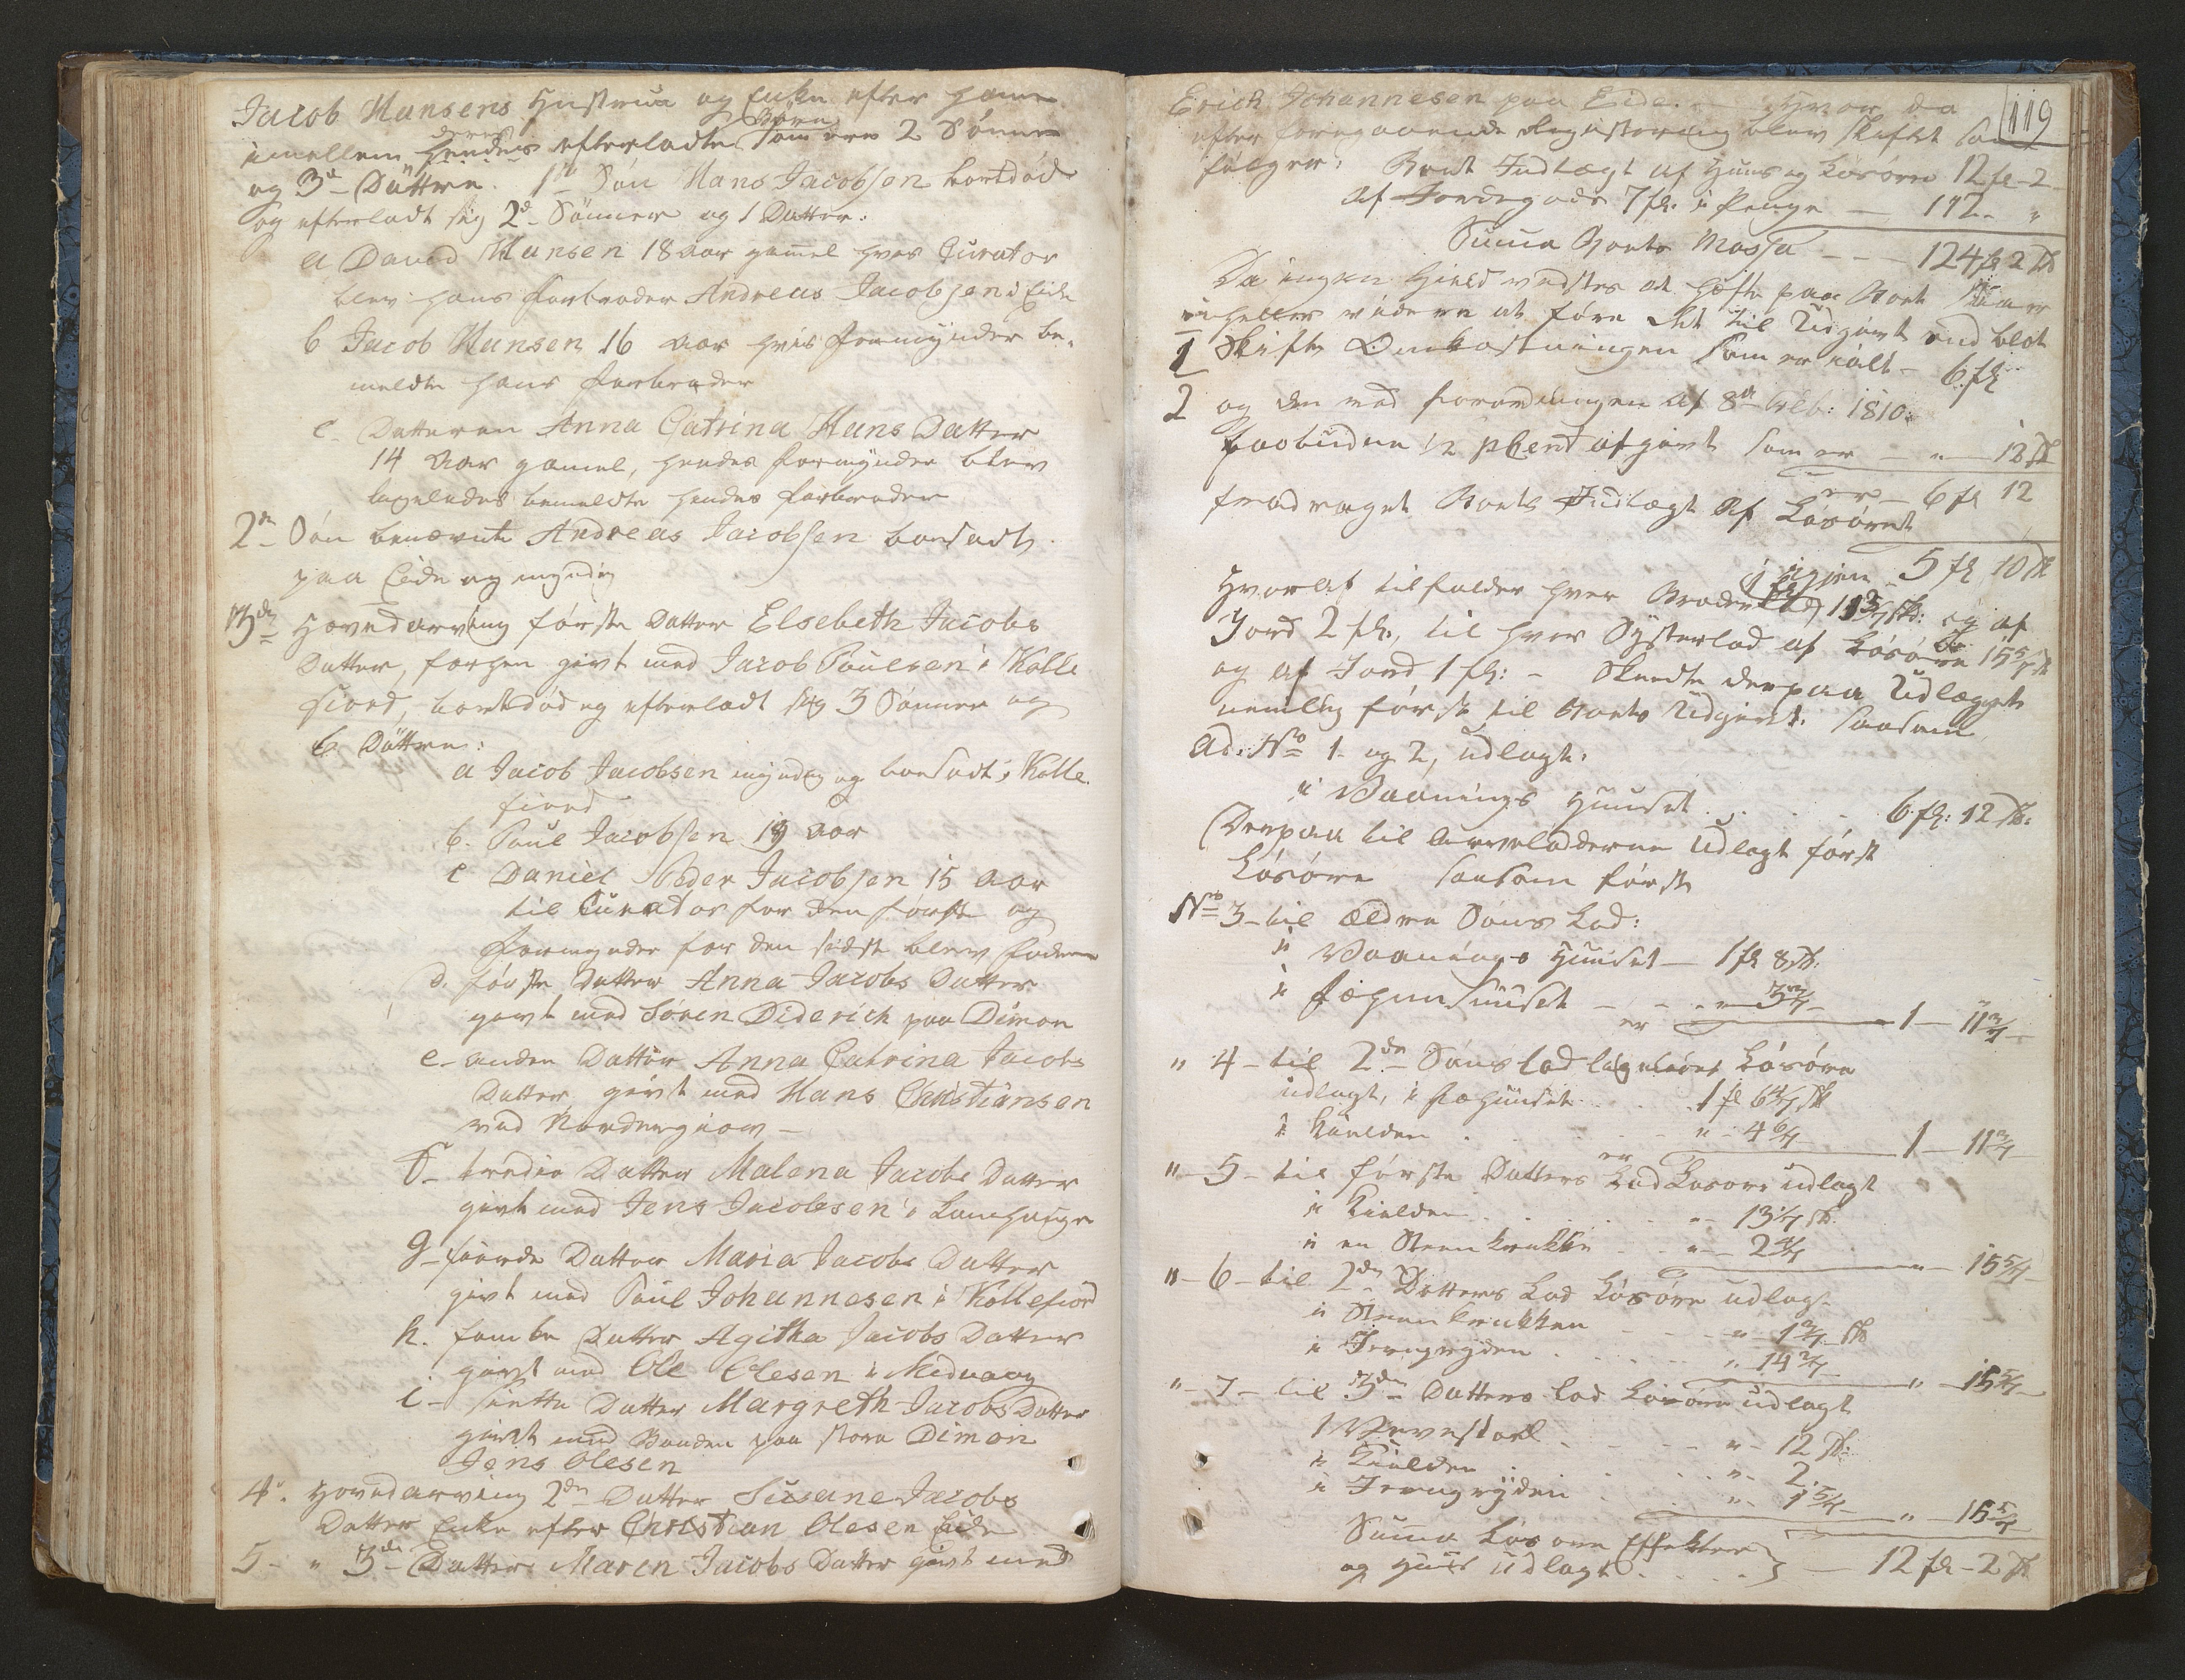 Jacob Hansens Hustrue og Enke efter ham
imellem deres hendes efterladte Børn som ere 2 Sønner
og 3de Døttre. 1te Søn Hans Jacobsen bortdød
og efterladt sig 2de Sønner og 1 Datter:
a David Hansen 18 aar gamel hvis Curator
blev hans Farbroder Andreas Jacobsen i Eide
b Jacob Hansen 16 aar hvis Formynder be-
meldte hans Farbroder
c. Datteren Anna Catrina Hans Datter
14 aar gamel, hendes Formynder blev
ligeledes bemeldte hendes Farbroder
2den Søn benævnte Andreas Jacobsen bosadt
paa Eide og myndig
3die Hovedarving første Datter Elsebeth Jacobs
Datter, forhen givt med Jacob Poulsen i Kolle
fiord, bortdød og efterladt sig 3 Sønner og
6 Døttre:
a Jacob Jacobsen myndig og bosadt i Kolle
fiord
b. Poul Jacobsen 19 aar
c Daniel Peder Jacobsen 15 aar
til Curator for den første og
Formynder for den sidste blev Faderen
d. første Datter Anna Jacobs Datter
givt med Søren Diderich paa Dimon
e- anden Datter Anna Catrina Jacobs
Datter givt med Hans Christiansen
ved Nordergiow -
f- tredie Datter Malena Jacobs Datter
givt med Jens Jacobsen i Lamhauge
g- fierde Datter Maria Jacobs Datter
givt med Poul Johannesen i Kollefiord
h. femte Datter Agitha Jacobs Datter
givt med Ole Olesen i Midvaag
i- siette Datter Margreth Jacobs Datter
givt med Bonden paa Store Dimon
Jens Olesen
4. Hovedarving 2den Datter Susane Jacobs
Datter Enke efter Christian Olesen Eide
5- " 3die Datter Maren Jacobs Datter givt med
119
Erich Johannesen paa Eide. - Hvor da
efter foregaaende Registering blev skiftet som
følger: Boets Indtægt af Huus og Løsøre 12 fl - 2
af Jordegods 7 fl. i Penge - 112 - "
Summa Boets Massa - - - 124 fl 2 sk
Da ingen Gield vidstes at hæfte paa Boet
heller videre at føre det til Udgivt end blot
1 Skifte Omkostningen som er - 6 fl
2 og den ved Forordningen af 8de Feb: 1810:
paabudne 1/2 pCent afgivt som er - " - 12 sk
er - 6 fl 12
fradraget Boets Indtægt af Løsøret
igien 5 fl 10 sk
Hvoraf tilfalder hver Broderlod 1 fl 11 3/7 sk: og af
Jord 2 fl., til hver Systerlod af Løsøre 15 5/7 sk
og af Jord 1 fl: - Skeedte derpaa Udlægget
nemlig først til Boets Udgivt: saasom
Ad: No 1 og 2, udlagt:
i Vaanings Huuset . . . 6 fl: 12 sk:
Derpaa til Arvelodderne Udlagt først
Løsøre saasom første
No 3- til ældre Søns Lod:
i Vaanings Huuset - 1 fl 8 sk.
i Fæhuuset - - " - 3 3/7 -
er - 1 - 11 3/7 -
" 4 - til 2den Søns Lod ligeledes Løsøre
udlagt, i Fæhuuset . . 1 fl 6 4/7 sk
i Kielden . . . " - 4 6/7
er 1 - 11 3/7
" - 5 - til første Datters Lod Løsøre udlagt
i Kielden . . . " - 13 1/7 sk.
i en Steen Krukke . . " - 2 4/7
" - 15 5/7
" - 6 - til 2den Datters Lod Løsøre udlagt
i Steen Krukken - - " - 1 3/7 sk
i Jerngryden . . . " 14 2/7
" - 15 5/7
" - 7 - til 3die Datters Lod Løsøre udlagt
1 Vævestoel . . - " - 12 sk:
i Kielden . . . " - 2.
i Jerngryden . . " - 1 5/7
" - 15 5/7
Summa Løsøre Effekter
og Huus udlagt . . . . } - 12 fl - 2 sk